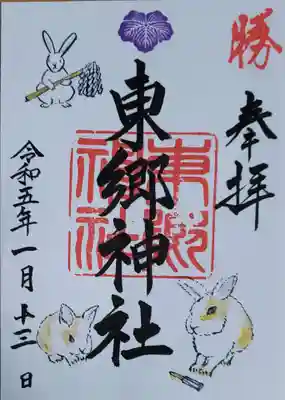 勝
奉拝
東郷神社
東郷神社
令和五年一月十三日